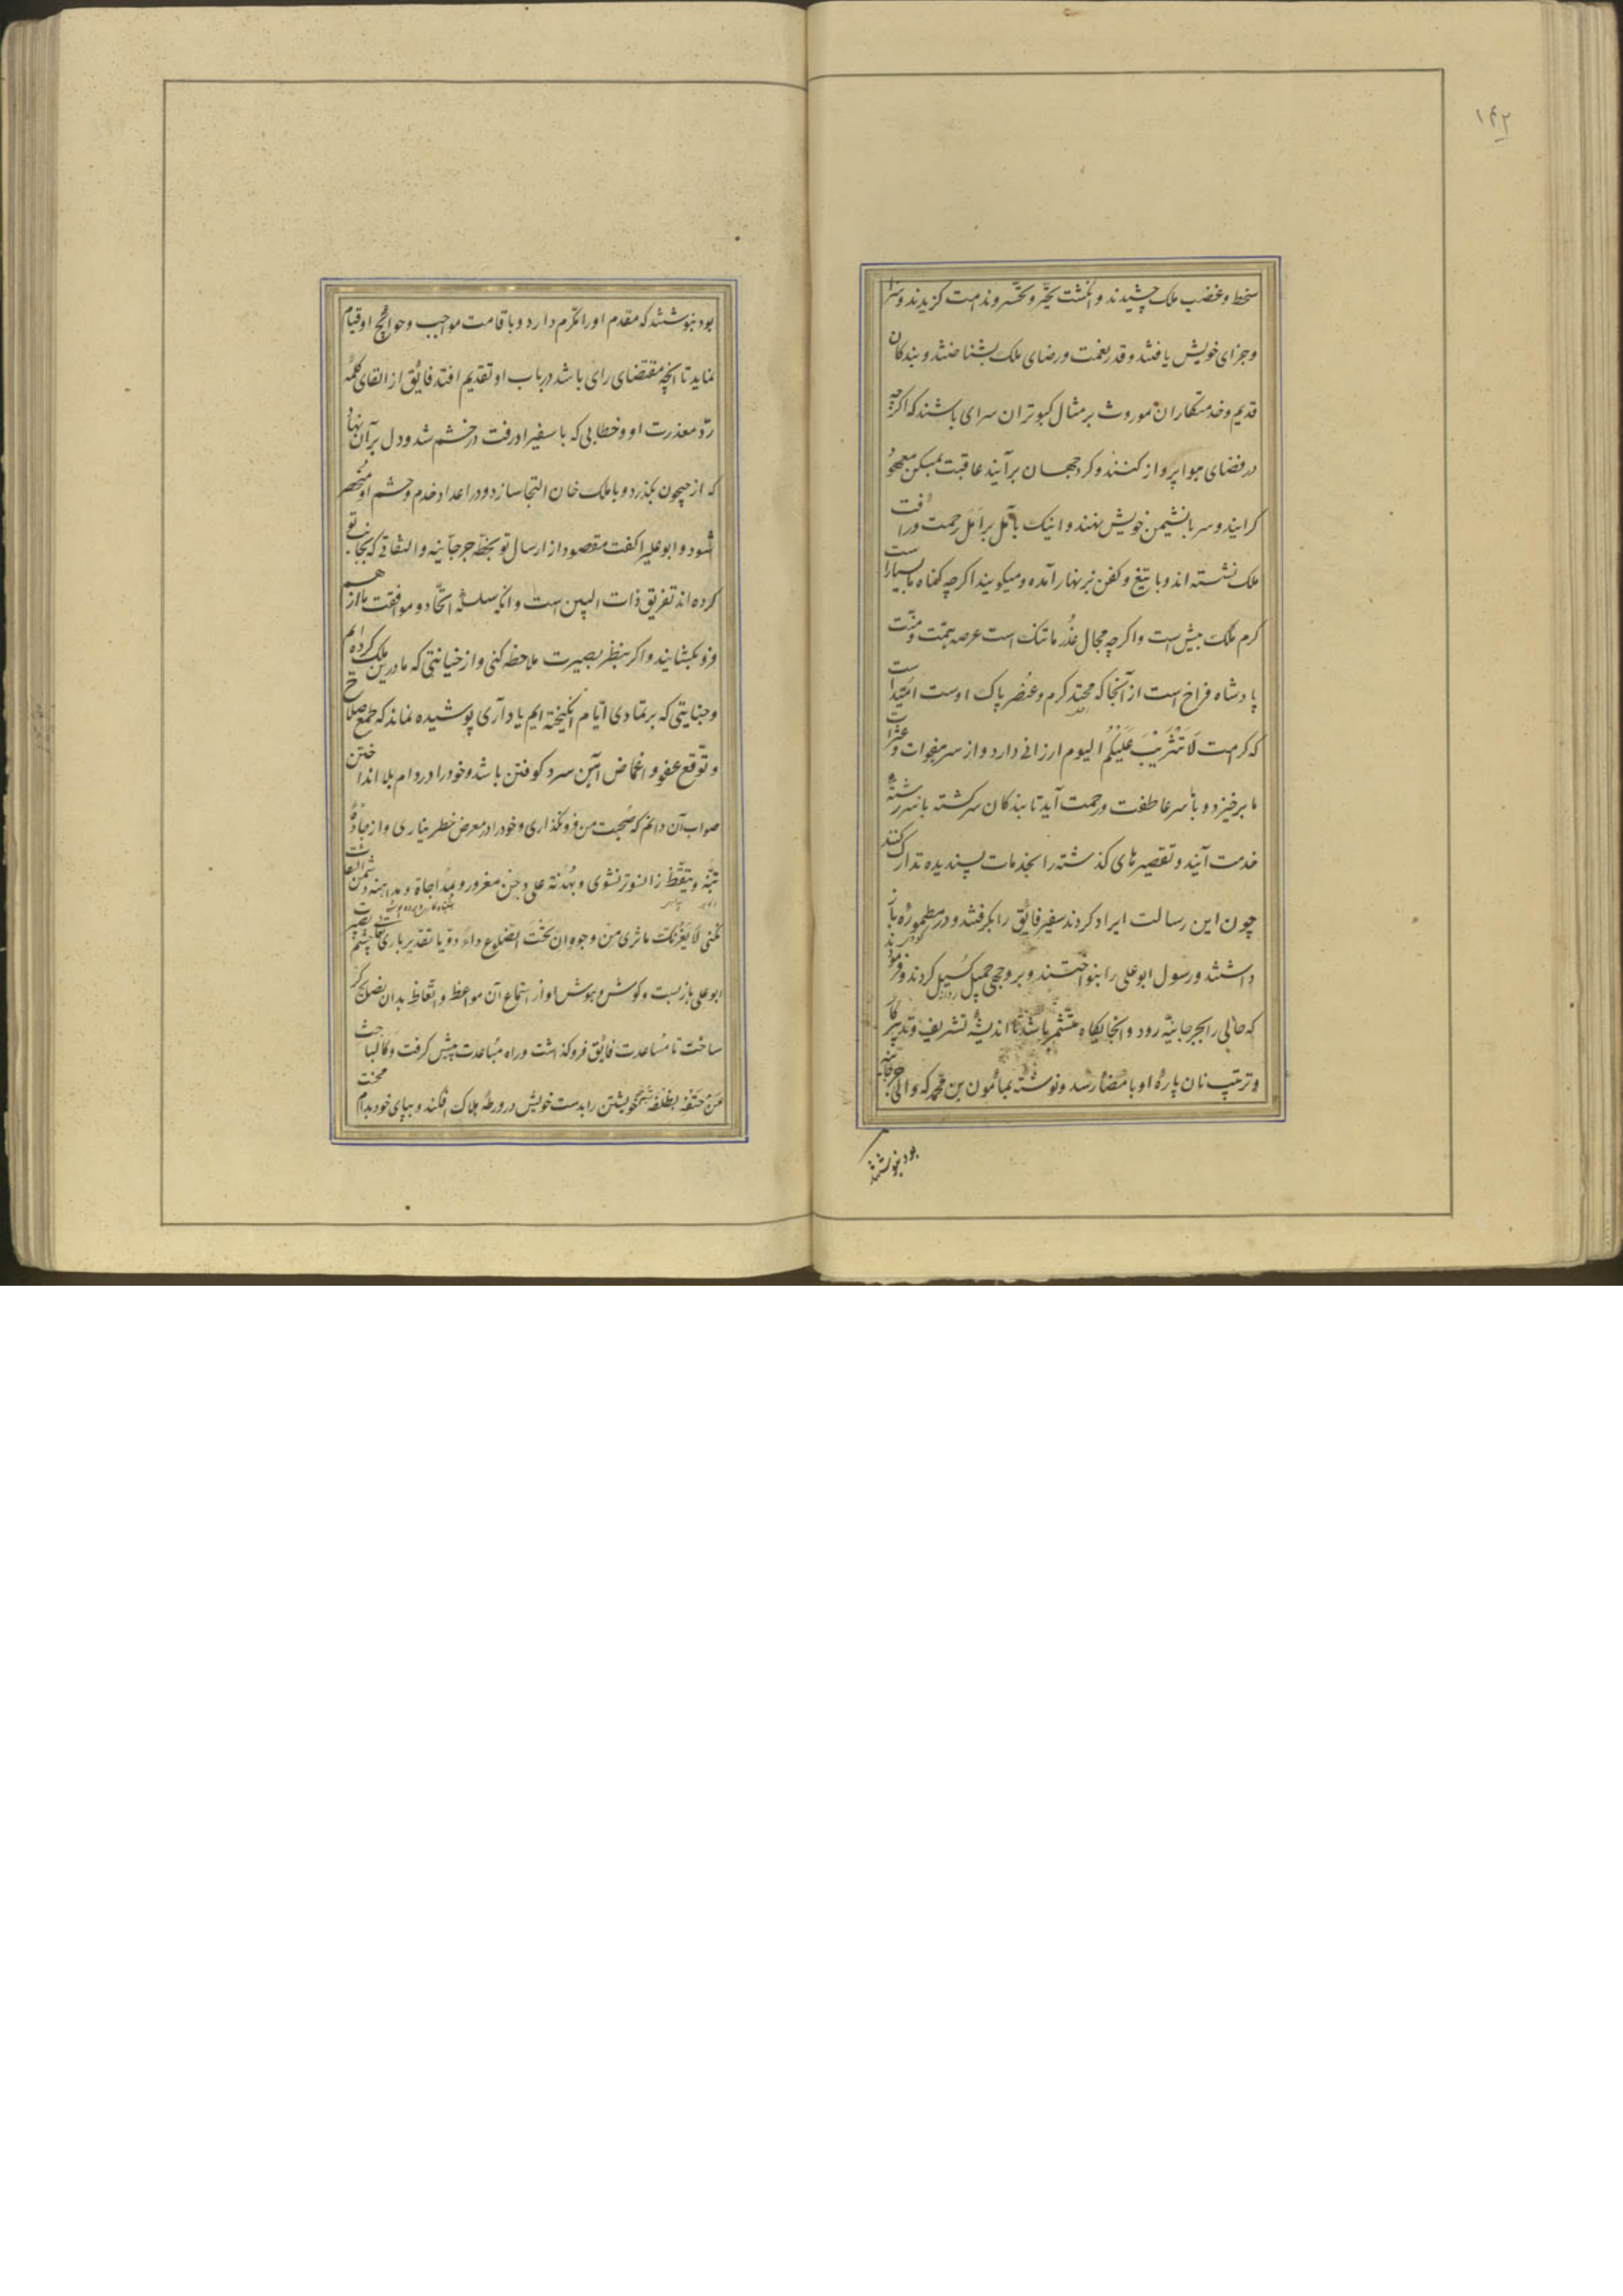 ۱۴۲
سخط و غضب ملک چشیدند و انکشت تحیّر و تحسّر و ندامت کزیدند و سزا
و جزای خویش یافتند و قدر نعمت و رضای ملک بشناختند و بندکان
قدیم و خدمتکاران موروث بر مثال کبوتران سرای باشند که اکرچه
در فضای هوا پرواز کنند و کرد جهان برآیند عاقبت بمسکن معهود
کرایند و سر بانشیمن خویش نهند و اینک باَمل بر اَمَل رحمت و رافت
ملک نشسته اند و با تیغ و کفن بزنهار آمده و میکویند اکرچه کناه ما بسیارست
کرم ملک بیش است و اکرچه مجال عُذر ما تنک است عرصه همّت و منّت
پادشاه فراخ است از آنجا که محتد کرم و عنصر پاک اوست امّیدست
که کرامت لَا تَثْرِیْبَ عَلَیْکُم الیوم ارزانی دارد و از سر هفوات و عثرات
ما برخیزد و با سر عاطفت و رحمت آید تا بندکان سرکشته با سر رشتهٔ
خدمت آیند و تقصیرهای کذشته را بخدمات پسندیده تدارک کنند
چون این رسالت ایراد کردند سفیر فایٔق را بکرفتند و در مطموره باز
داشتند و رسول ابوعلی را بنواختند و بر وجهی جمیل کُسیل کردند و فرمود
که حالی را بجرجانیّه رود و آنجایکاه متشمّر باشد تا اندیشهٔ تشریف و تدبیر کار
و ترتیب نان پارهٔ او بامضا رسد و نوشته بمامٔون بن محمد که والی جرجانیه
بود بنوشتند
بود بنوشتند که مقدم او را مکرّم دارد و باقامت مواجب و حوایٔج او قیام
نماید تا آنچه مقتضای رای باشد در باب او تقدیم افتد فایٔق از القای کلمهٔ
ردّ معذرت او و خطابی که با سفیر او رفت در خشم شد و دل بر آن نهاد
که از جیحون بکذرد و با ملک خان التجا سازد و در اعداد خدم و حشم او منحصر
شود و ابوعلی را کفت مقصود از ارسال تو بخطّهٔ جرجانیه و التفاتی که بجانب تو
کرده اند تفریق ذات البین است و آنکه سلسلهٔ اتّحاد و موافقت ما از هم
فرو کشایند و اکر بنظر بصیرت ملاحظه کنی و از خیانتی که ما در این ملک کرده ایم
و جنایتی که بر تمادی ایّام انکیخته ایم یاد آری پوشیده نماند که طمع صلاح
و توّقع عفو و اغماض آهن سرد کوفتن باشد و خود را در دام بلا انداختن
صواب آن دانم که صُحبت من فرو نکذاری و خود را در معرض خطر نیاری و از جادّهٔ
تنبّه و تیقّظ زاستر نشوی و بهُدنة علی دخن مغرور و بمداجاة و مداهنه دشمن التفات
نکنی لَا یَغُرَّنَّکَ ما تَری مِن وجوهٍ اِنَّ تَحْتَ الضلوع داءً دویّا تقدیر باری تعالی چشم بصیرت
ابوعلی باز بست و کوش و هوش او از استماع آن مواعظ و اتّعاظ بدان نصایح کر
ساخت تا مُساعدت فایٔق فروکذاشت و راه مُباعدت پیش کرفت و کالباحث
عَن حَتفه بظلفه خویشتن را بدست خویش در ورطهٔ هلاک افکند و بپای خود بدام محنت